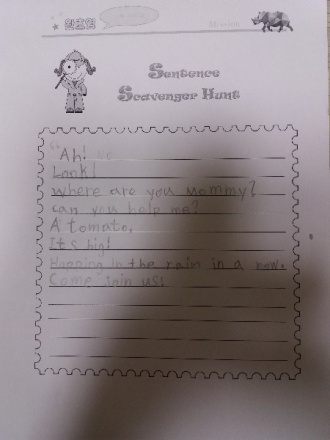 Sentence
Scavenger Hunt
"Ah! No
Look!
Where are you mommy?
Can you help me?
A tomato.
It's big!
Hopping in the rain in a row.
Come join us!